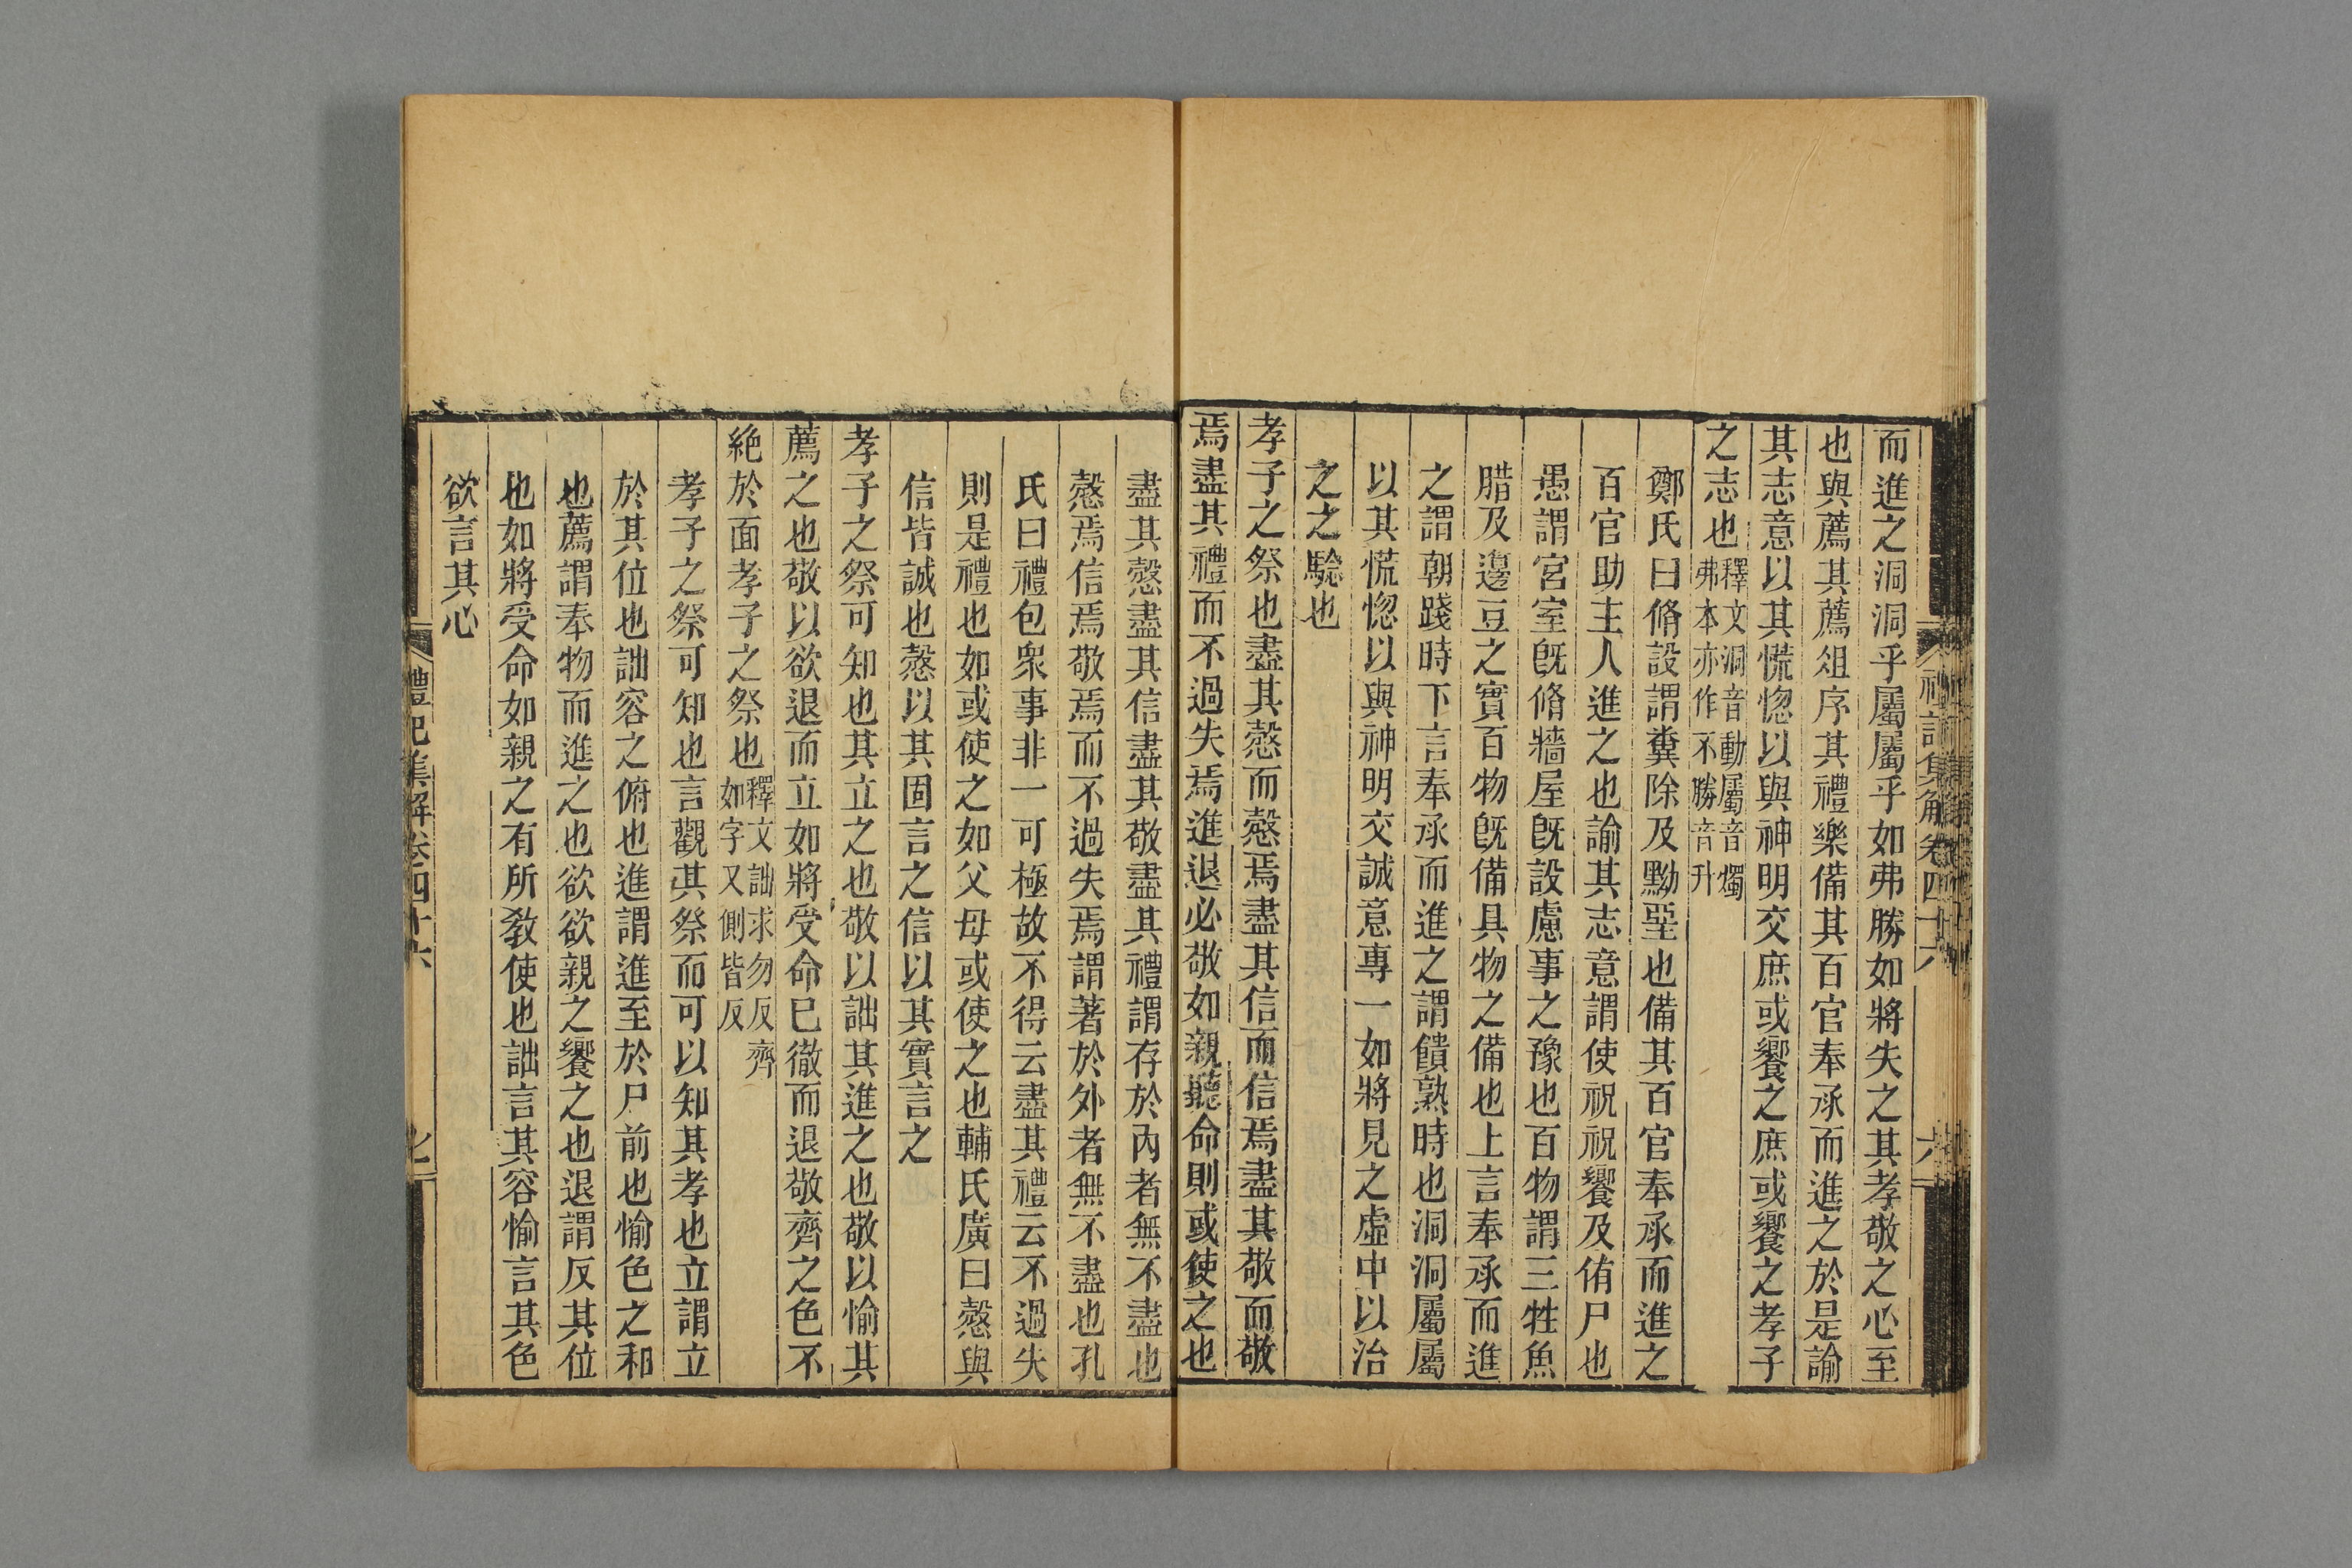 禮記集解卷四十六
六
而進之洞洞乎屬屬乎如弗勝如將失之其孝敬之心至
也與薦其薦俎序其禮樂備其百官奉承而進之於是諭
其志意以其慌惚以與神明交庶或饗之庶或饗之孝子
之志也釋文洞音動屬音燭
弗本亦作不勝音升
鄭氏曰脩設謂糞除及黝堊也備其百官奉承而進之
百官助主人進之也諭其志意謂使祝祝饗及侑尸也
愚謂宮室旣脩牆屋旣設慮事之豫也百物謂三牲魚
腊及籩豆之實百物旣備具物之備也上言奉承而進
之謂朝踐時下言奉承而進之謂饋熟時也洞洞屬屬
以其慌惚以與神明交誠意專一如將見之虛中以治
之之驗也
孝子之祭也盡其愨而愨焉盡其信而信焉盡其敬而敬
焉盡其禮而不過失焉進退必敬如親聽命則或使之也
盡其愨盡其信盡其敬盡其禮謂存於內者無不盡也
愨焉信焉敬焉而不過失焉謂著於外者無不盡也孔
氏曰禮包衆事非一可極故不得云盡其禮云不過失
則是禮也如或使之如父母或使之也輔氏廣曰愨與
信皆誠也愨以其固言之信以其實言之
孝子之祭可知也其立之也敬以詘其進之也敬以愉其
薦之也敬以欲退而立如將受命已徹而退敬齊之色不
絕於面孝子之祭也釋文詘求勿反齊
如字又側皆反
孝子之祭可知也言觀其祭而可以知其孝也立謂立
於其位也詘容之俯也進謂進至於尸前也愉色之和
也薦謂奉物而進之也欲欲親之饗之也退謂反其位
也如將受命如親之有所敎使也詘言其容愉言其色
欲言其心
禮記集解卷四十六
七